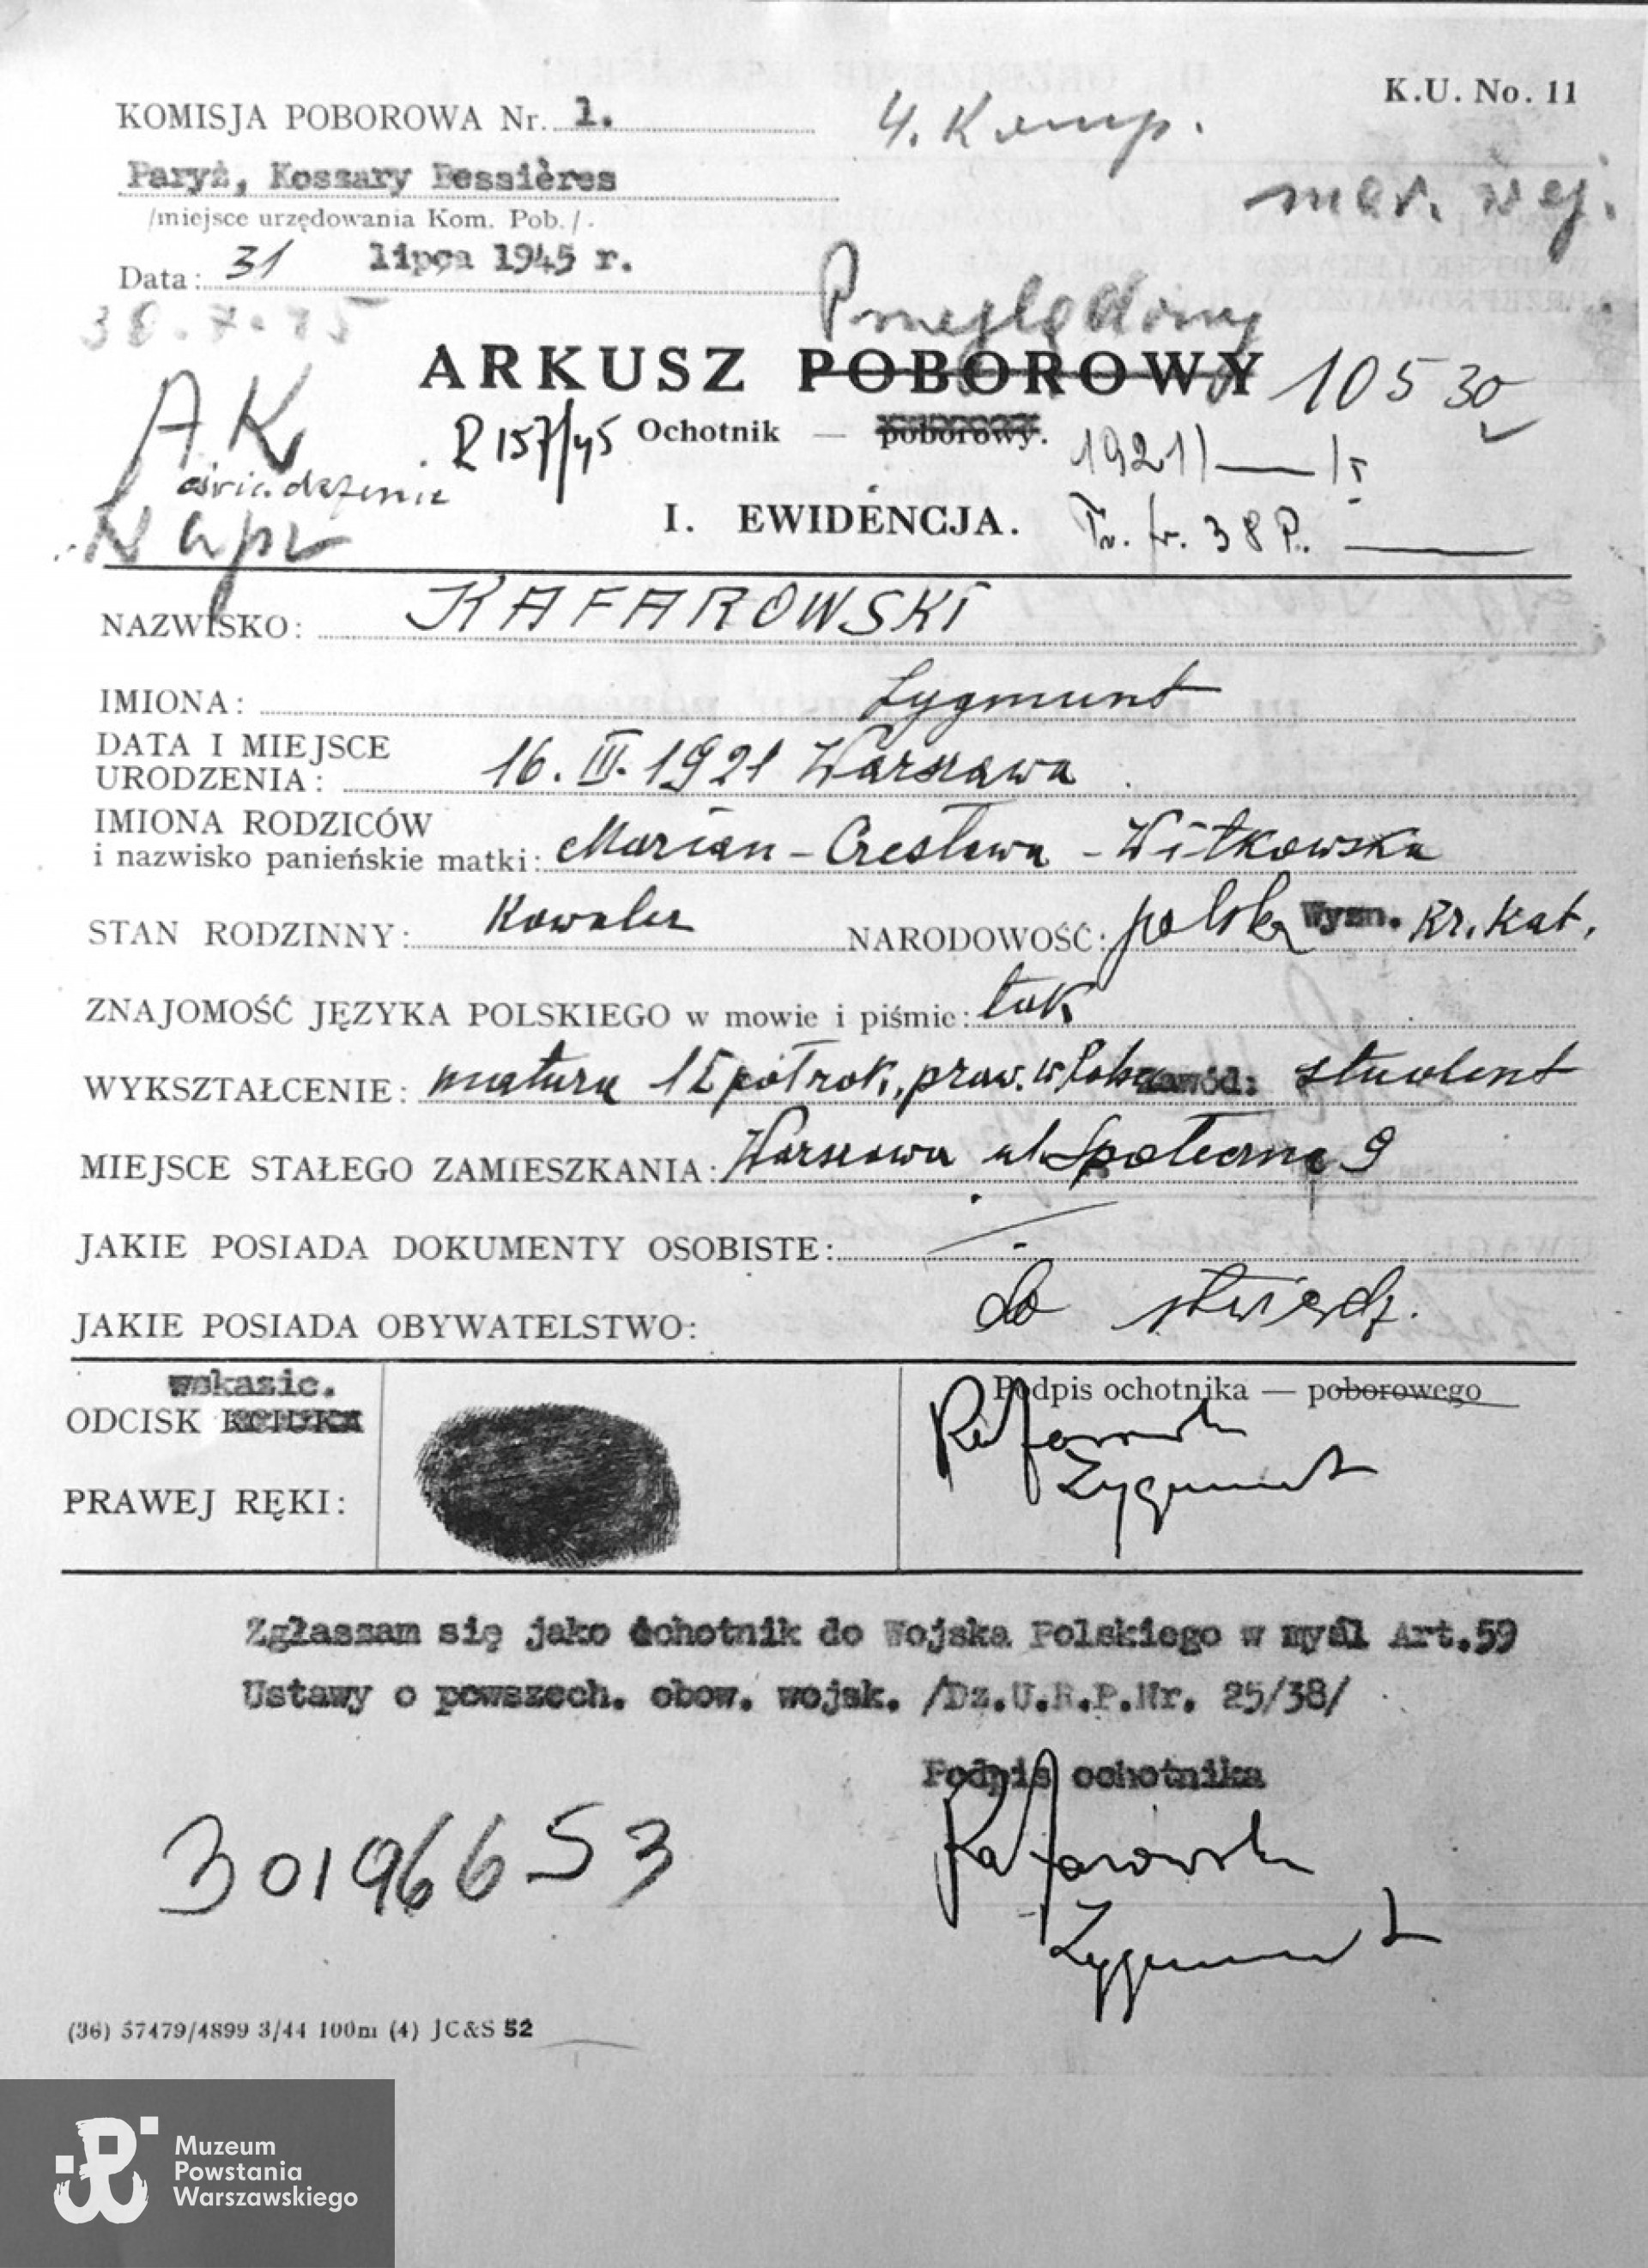 K.U. No. 11
KOMISJA POBOROWA Nr. 1.
4. Komp.
Paryż, Koszary Bessières
mar. wej.
/miejsce urzędowania Kom. Pob./.
Data: 31 lipca 1945 r.
30.7.45
Przeglądowy
ARKUSZ POBOROWY 10530
AK
R 157/45 Ochotnik — poborowy.
1921/—/I
oświadczenie
I. EWIDENCJA.
38 P.
NAZWISKO: KAFAROWSKI
IMIONA: Zygmunt
DATA I MIEJSCE
URODZENIA: 16. III. 1921 Warszawa
IMIONA RODZICÓW
i nazwisko panieńskie matki: Marian - Czesława - Witkowska
STAN RODZINNY: Kawaler NARODOWOŚĆ: polska Wyzn. Rz. Kat.
ZNAJOMOŚĆ JĘZYKA POLSKIEGO w mowie i piśmie: tak
WYKSZTAŁCENIE: matura 1 i pół rok. praw. w zawód: student
MIEJSCE STAŁEGO ZAMIESZKANIA: Warszawa ul. Społeczna 9
JAKIE POSIADA DOKUMENTY OSOBISTE:
JAKIE POSIADA OBYWATELSTWO: do stwierdz.
wskazic.
ODCISK KCIUKA
PRAWEJ RĘKI:
Podpis ochotnika — poborowego
Kafarowski
Zygmunt
Zgłaszam się jako ochotnik do Wojska Polskiego w myśl Art.59
Ustawy o powszech. obow. wojsk. /Dz.U.R.P.Nr. 25/38/
Podpis ochotnika
Kafarowski
Zygmunt
30196653
(36) 57479/4899 3/44 100m (4) JC&S 52
Muzeum
Powstania
Warszawskiego